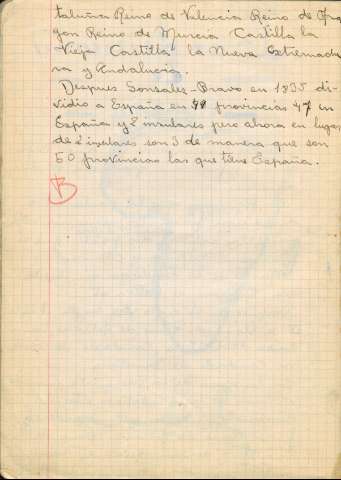 taluña Reino de Valencia Reino de Ara
gon Reino de Murcia Castilla la
Vieja Castilla la Nueva Extremadu
ra y Andalucia.
Despues Gonsales-Bravo en 1835 di-
vidio a España en provincias 47 en
España y 2 insulares pero ahora en lugar
de 2 insulares son 3 de manera que son
50 provincias las que tiene España.
B